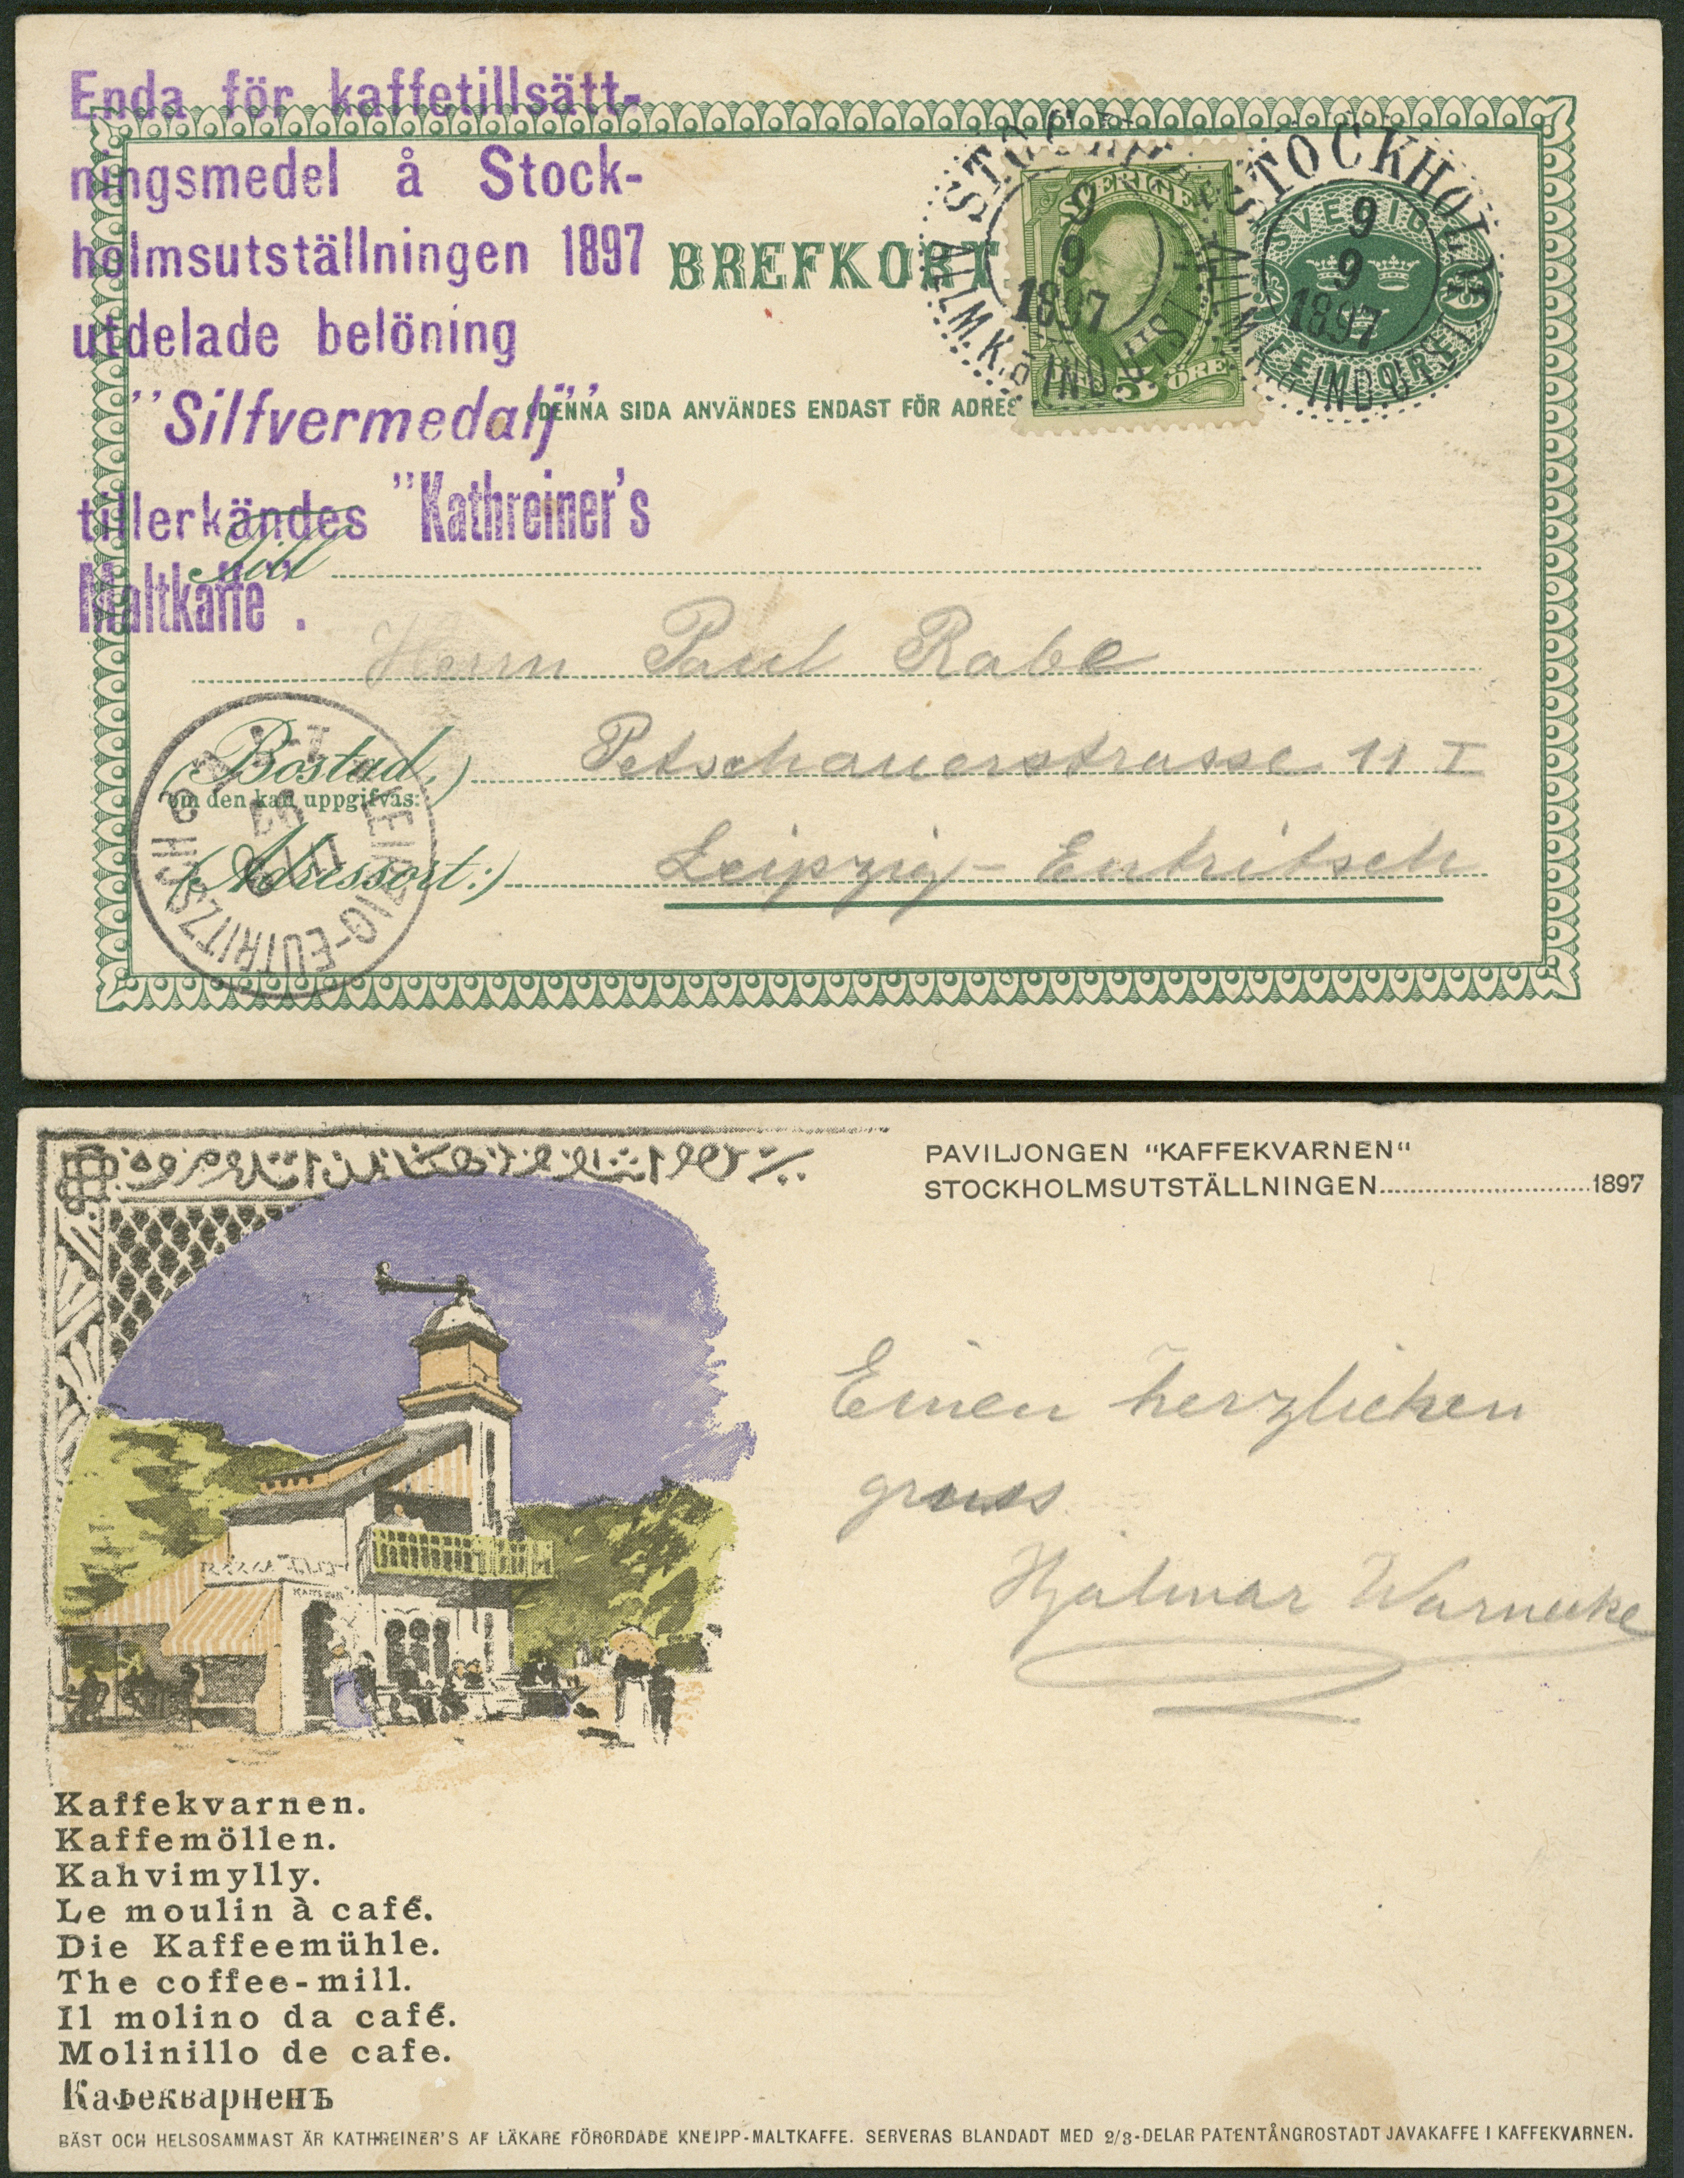 Enda för kaffetillsätt-
ningsmedel å Stock-
holmsutställningen 1897
utdelade belöning
"Silfvermedalj"
tillerkändes "Kathreiner's
Maltkaffe".
BREFKORT
(DENNA SIDA ANVÄNDES ENDAST FÖR ADRES
STOCKHOLM
9
9
1897
ALLM. K. & IND. UTST.
SVERIGE
5 ÖRE
STOCKHOLM
9
9
1897
ALLM. K. & IND. UTST.
SVERIGE
FEM ÖRE
Till
Herrn Paul Rabe
(Bostad,)
om den kan uppgifvas:
Petschauerstrasse 11 I
(Adressort:)
Leipzig-Entritsch
LEIPZIG-EUTRITZSCH
Paviljongen "KAFFEKVARNEN"
STOCKHOLMSUTSTÄLLNINGEN 1897
Einen herzlichen
gruss
Hjalmar Warnecke
Kaffekvarnen.
Kaffemöllen.
Kahvimylly.
Le moulin à café.
Die Kaffeemühle.
The coffee-mill.
Il molino da café.
Molinillo de cafe.
Кафекварненъ
BÄST OCH HELSOSAMMAST ÄR KATHREINER'S AF LÄKARE FÖRORDADE KNEIPP-MALTKAFFE. SERVERAS BLANDADT MED 2/3-DELAR PATENTÅNGROSTADT JAVAKAFFE I KAFFEKVARNEN.